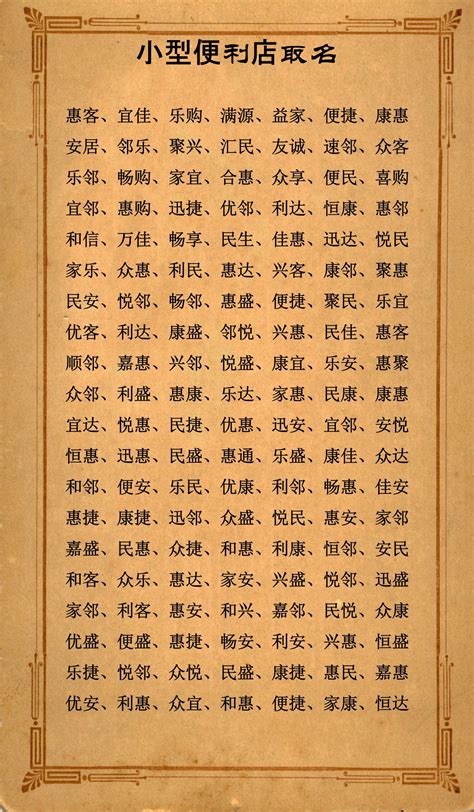 小型便利店取名
惠客、宜佳、乐购、满源、益家、便捷、康惠
安居、邻乐、聚兴、汇民、友诚、速邻、众客
乐邻、畅购、家宜、合惠、众享、便民、喜购
宜邻、惠购、迅捷、优邻、利达、恒康、惠邻
和信、万佳、畅享、民生、佳惠、迅达、悦民
家乐、众惠、利民、惠达、兴客、康邻、聚惠
民安、悦邻、畅邻、惠盛、便捷、聚民、乐宜
优客、利达、康盛、邻悦、兴惠、民佳、惠客
顺邻、嘉惠、兴邻、悦盛、康宜、乐安、惠聚
众邻、利盛、惠康、乐达、家惠、民康、康惠
宜达、悦惠、民捷、优惠、迅安、宜邻、安悦
恒惠、迅惠、民盛、惠通、乐盛、康佳、众达
和邻、便安、乐民、优康、利邻、畅惠、佳安
惠捷、康捷、迅邻、众盛、悦民、惠安、家邻
嘉盛、民惠、众捷、和惠、利康、恒邻、安民
和客、众乐、惠达、家安、兴盛、悦邻、迅盛
家邻、利客、惠安、和兴、嘉邻、民悦、众康
优盛、便盛、惠捷、畅安、利安、兴惠、恒盛
乐捷、悦邻、众悦、民盛、康捷、惠民、嘉惠
优安、利惠、众宜、和惠、便捷、家康、恒达